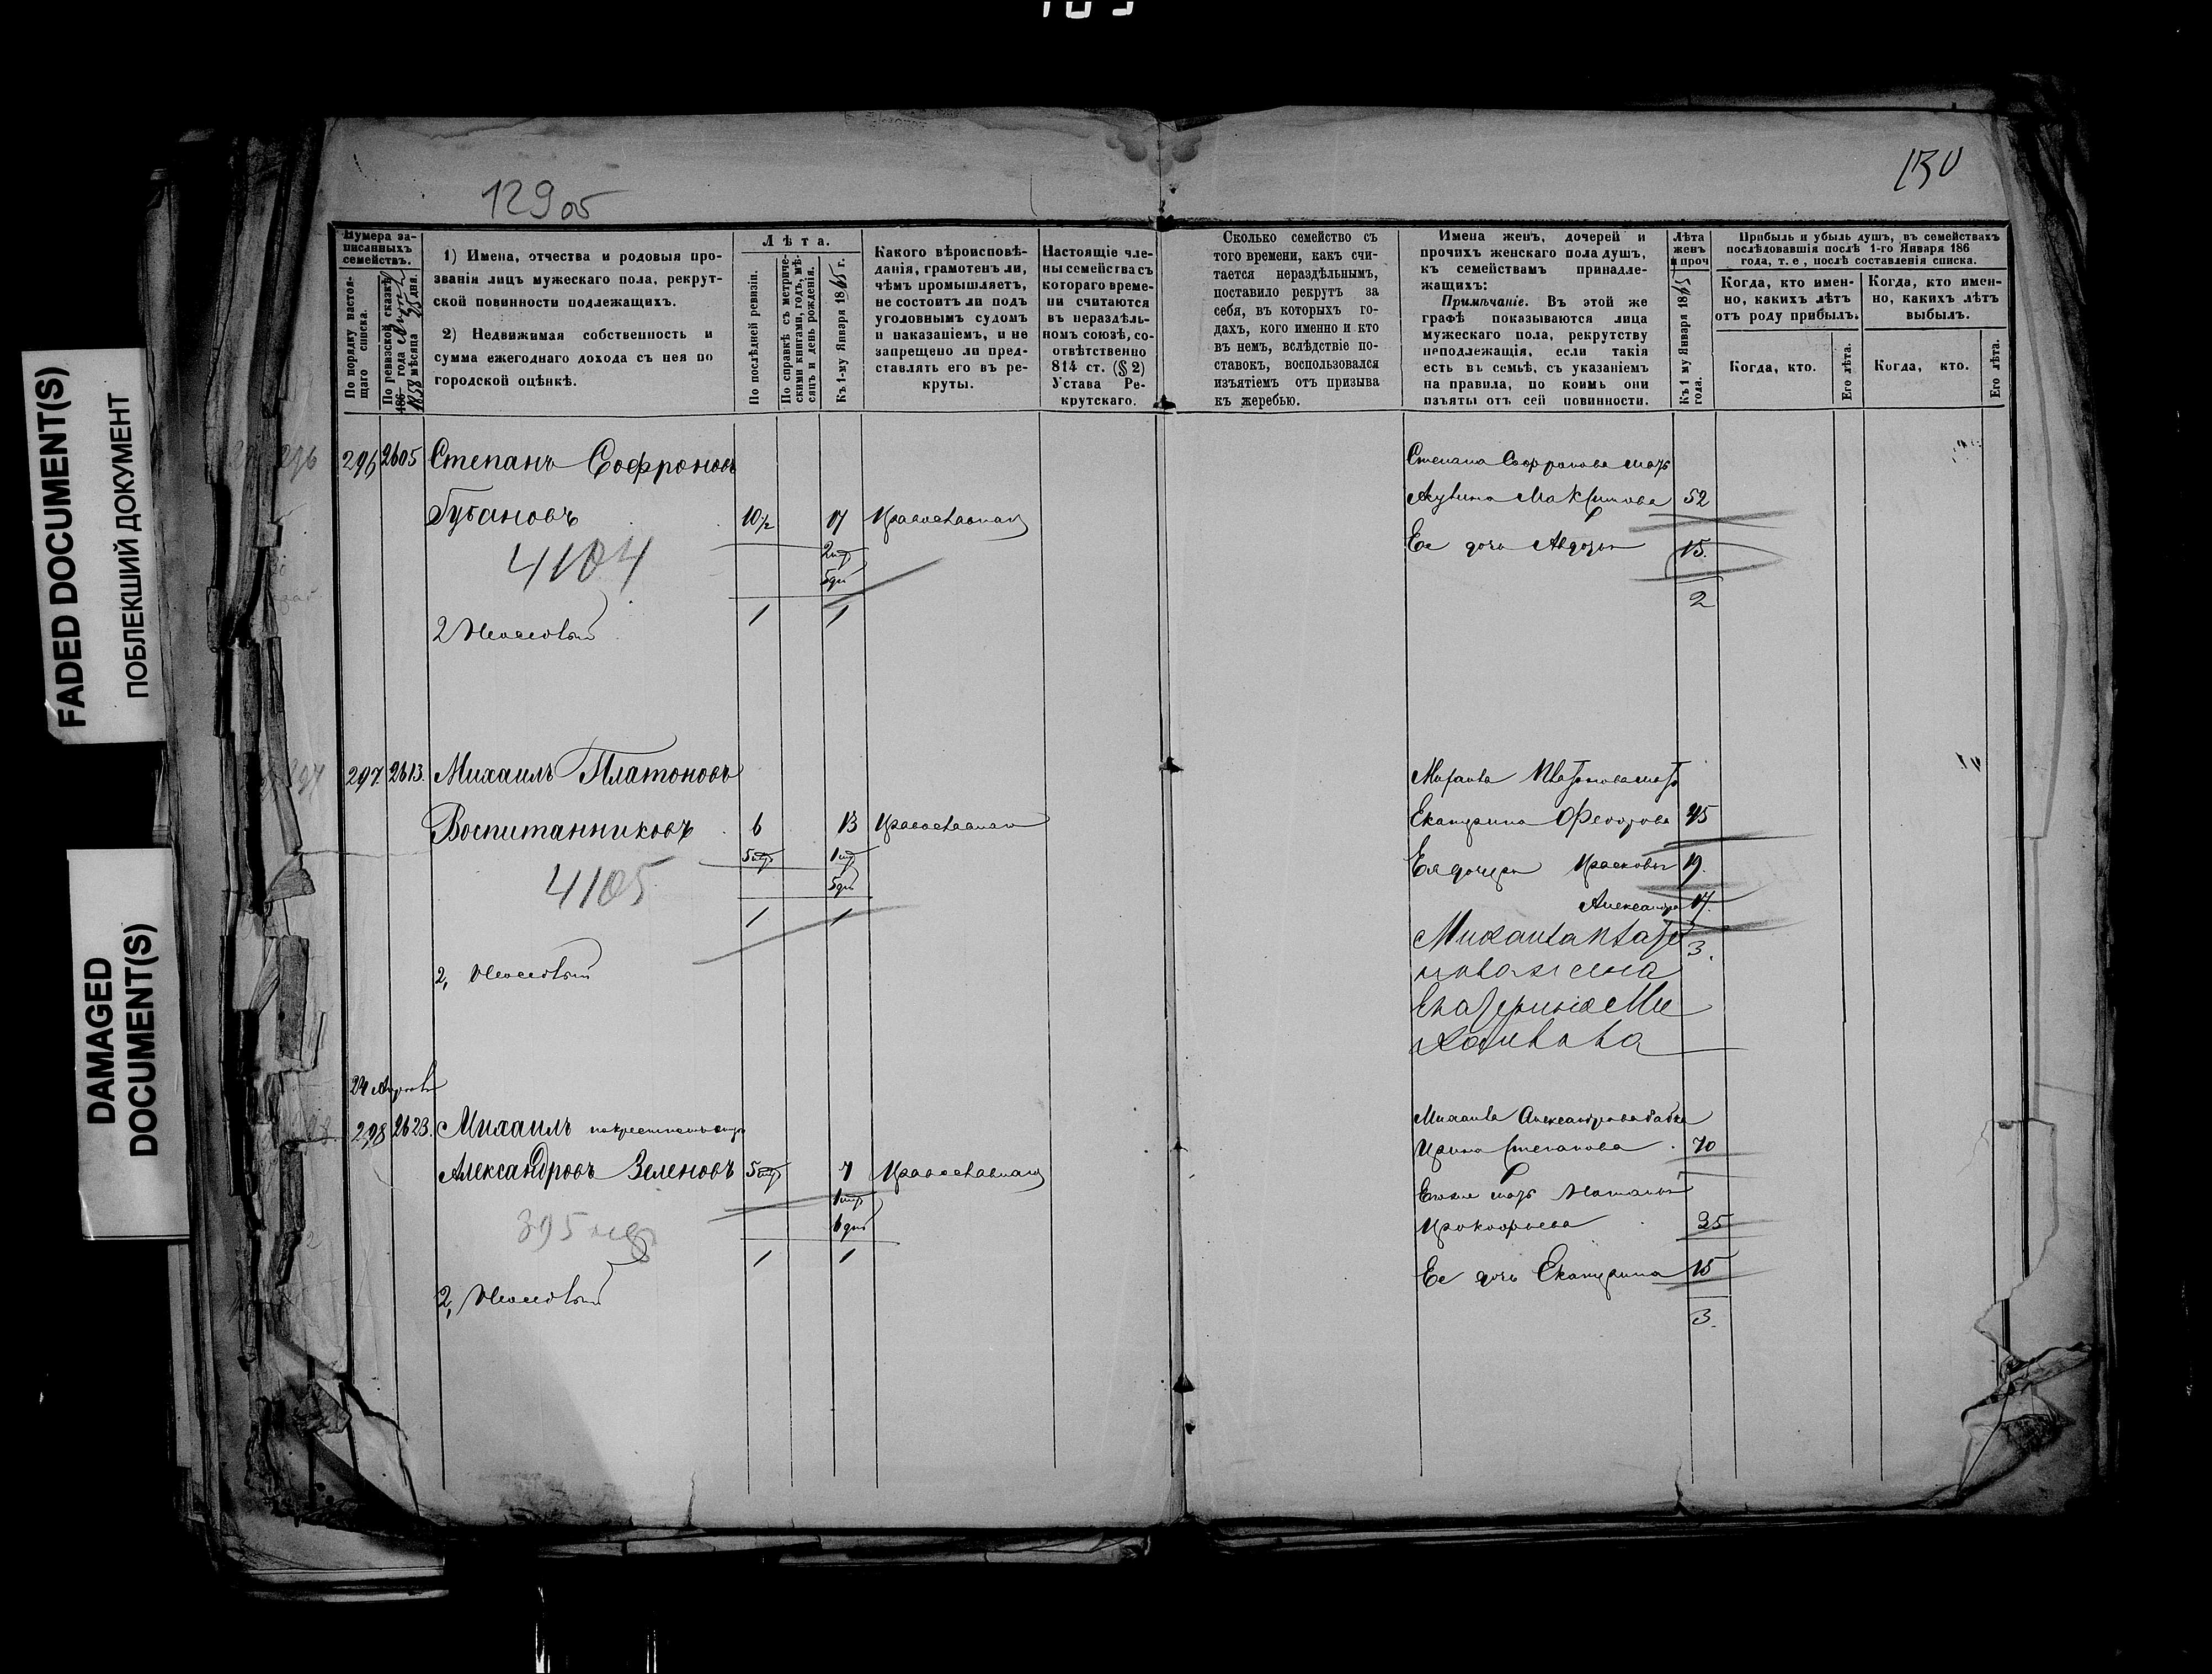 FADED DOCUMENT(S)
ПОБЛЕКШИЙ ДОКУМЕНТ
DAMAGED
DOCUMENT(S)
129 об
130
Нумера за-
писанныхъ
семействъ.
По порядку настоя-
щаго списка.
По ревизской сказкѣ
186 года
1858 мѣсяца 25 дня.
1) Имена, отчества и родовыя про-
званія лицъ мужескаго пола, рекрут-
ской повинности подлежащихъ.
2) Недвижимая собственность и
сумма ежегоднаго дохода съ нея по
городской оцѣнкѣ.
Лѣта.
По послѣдней ревизіи.
По справкѣ съ метриче-
скими книгами, годъ, мѣ-
сяцъ и день рожденія.
Къ 1-му Января 1865 г.
Какого вѣроисповѣ-
данія, грамотенъ ли,
чѣмъ промышляетъ,
не состоитъ ли подъ
уголовнымъ судомъ
и наказаніемъ, и не
запрещено ли пред-
ставлять его въ ре-
круты.
Настоящіе чле-
ны семейства съ
котораго време-
ни считаются
въ нераздѣль-
номъ союзѣ, со-
отвѣтственно
814 ст. (§ 2)
Устава Ре-
крутскаго.
Сколько семейство съ
того времени, какъ счи-
тается нераздѣльнымъ,
поставило рекрутъ за
себя, въ которыхъ го-
дахъ, кого именно и кто
въ немъ, вслѣдствіе по-
ставокъ, воспользовался
изъятіемъ отъ призыва
къ жеребью.
Имена женъ, дочерей и
прочихъ женскаго пола душъ,
къ семействамъ принадле-
жащихъ:
Примѣчаніе. Въ этой же
графѣ показываются лица
мужескаго пола, рекрутству
неподлежащія, если такія
есть въ семьѣ, съ указаніемъ
на правила, по коимъ они
изъяты отъ сей повинности.
Лѣта
женъ
и проч
Къ 1 му Января 1865
года.
Прибыль и убыль душъ, въ семействахъ
послѣдовавшія послѣ 1-го Января 186
года, т. е, послѣ составленія списка.
Когда, кто имен-
но, какихъ лѣтъ
отъ роду прибылъ.
Когда, кто имен-
но, какихъ лѣтъ
выбылъ.
Когда, кто.
Его лѣта.
Когда, кто.
Его лѣта.
296 2605 Степанъ Софроновъ
Губановъ 10/2 17 Православнаго
4104
1 1
Степана Софронова мать
Акулина Максимова 52
Ее дочь Авдотья 15.
2
297 2613. Михаилъ Платоновъ
Воспитанниковъ 6 13 Православнаго
4105
1 1
Михаила Платонова мать
Екатерина Феодорова 45
Ея дочери Прасковья 19.
Александра 17.
3.
Михаила Плато
нова жена
Екатерина Ми
хайлова
298 2623. Михаилъ
Александровъ Зеленовъ 7 Православнаго
395
1 1
Михаила Александрова бабка
Ирина Степанова 70
Его же мать Наталья
Прокофьева 35
Ее дочь Екатерина 15
3.